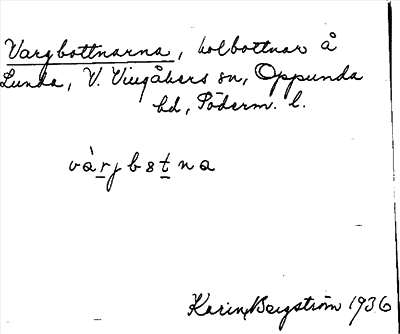 Vargbottnarna, kolbottnar å
Lunda, V. Vingåkers sn, Oppunda
hd, Söderm. l.
vàrjbotna
Karin Bergström 1936